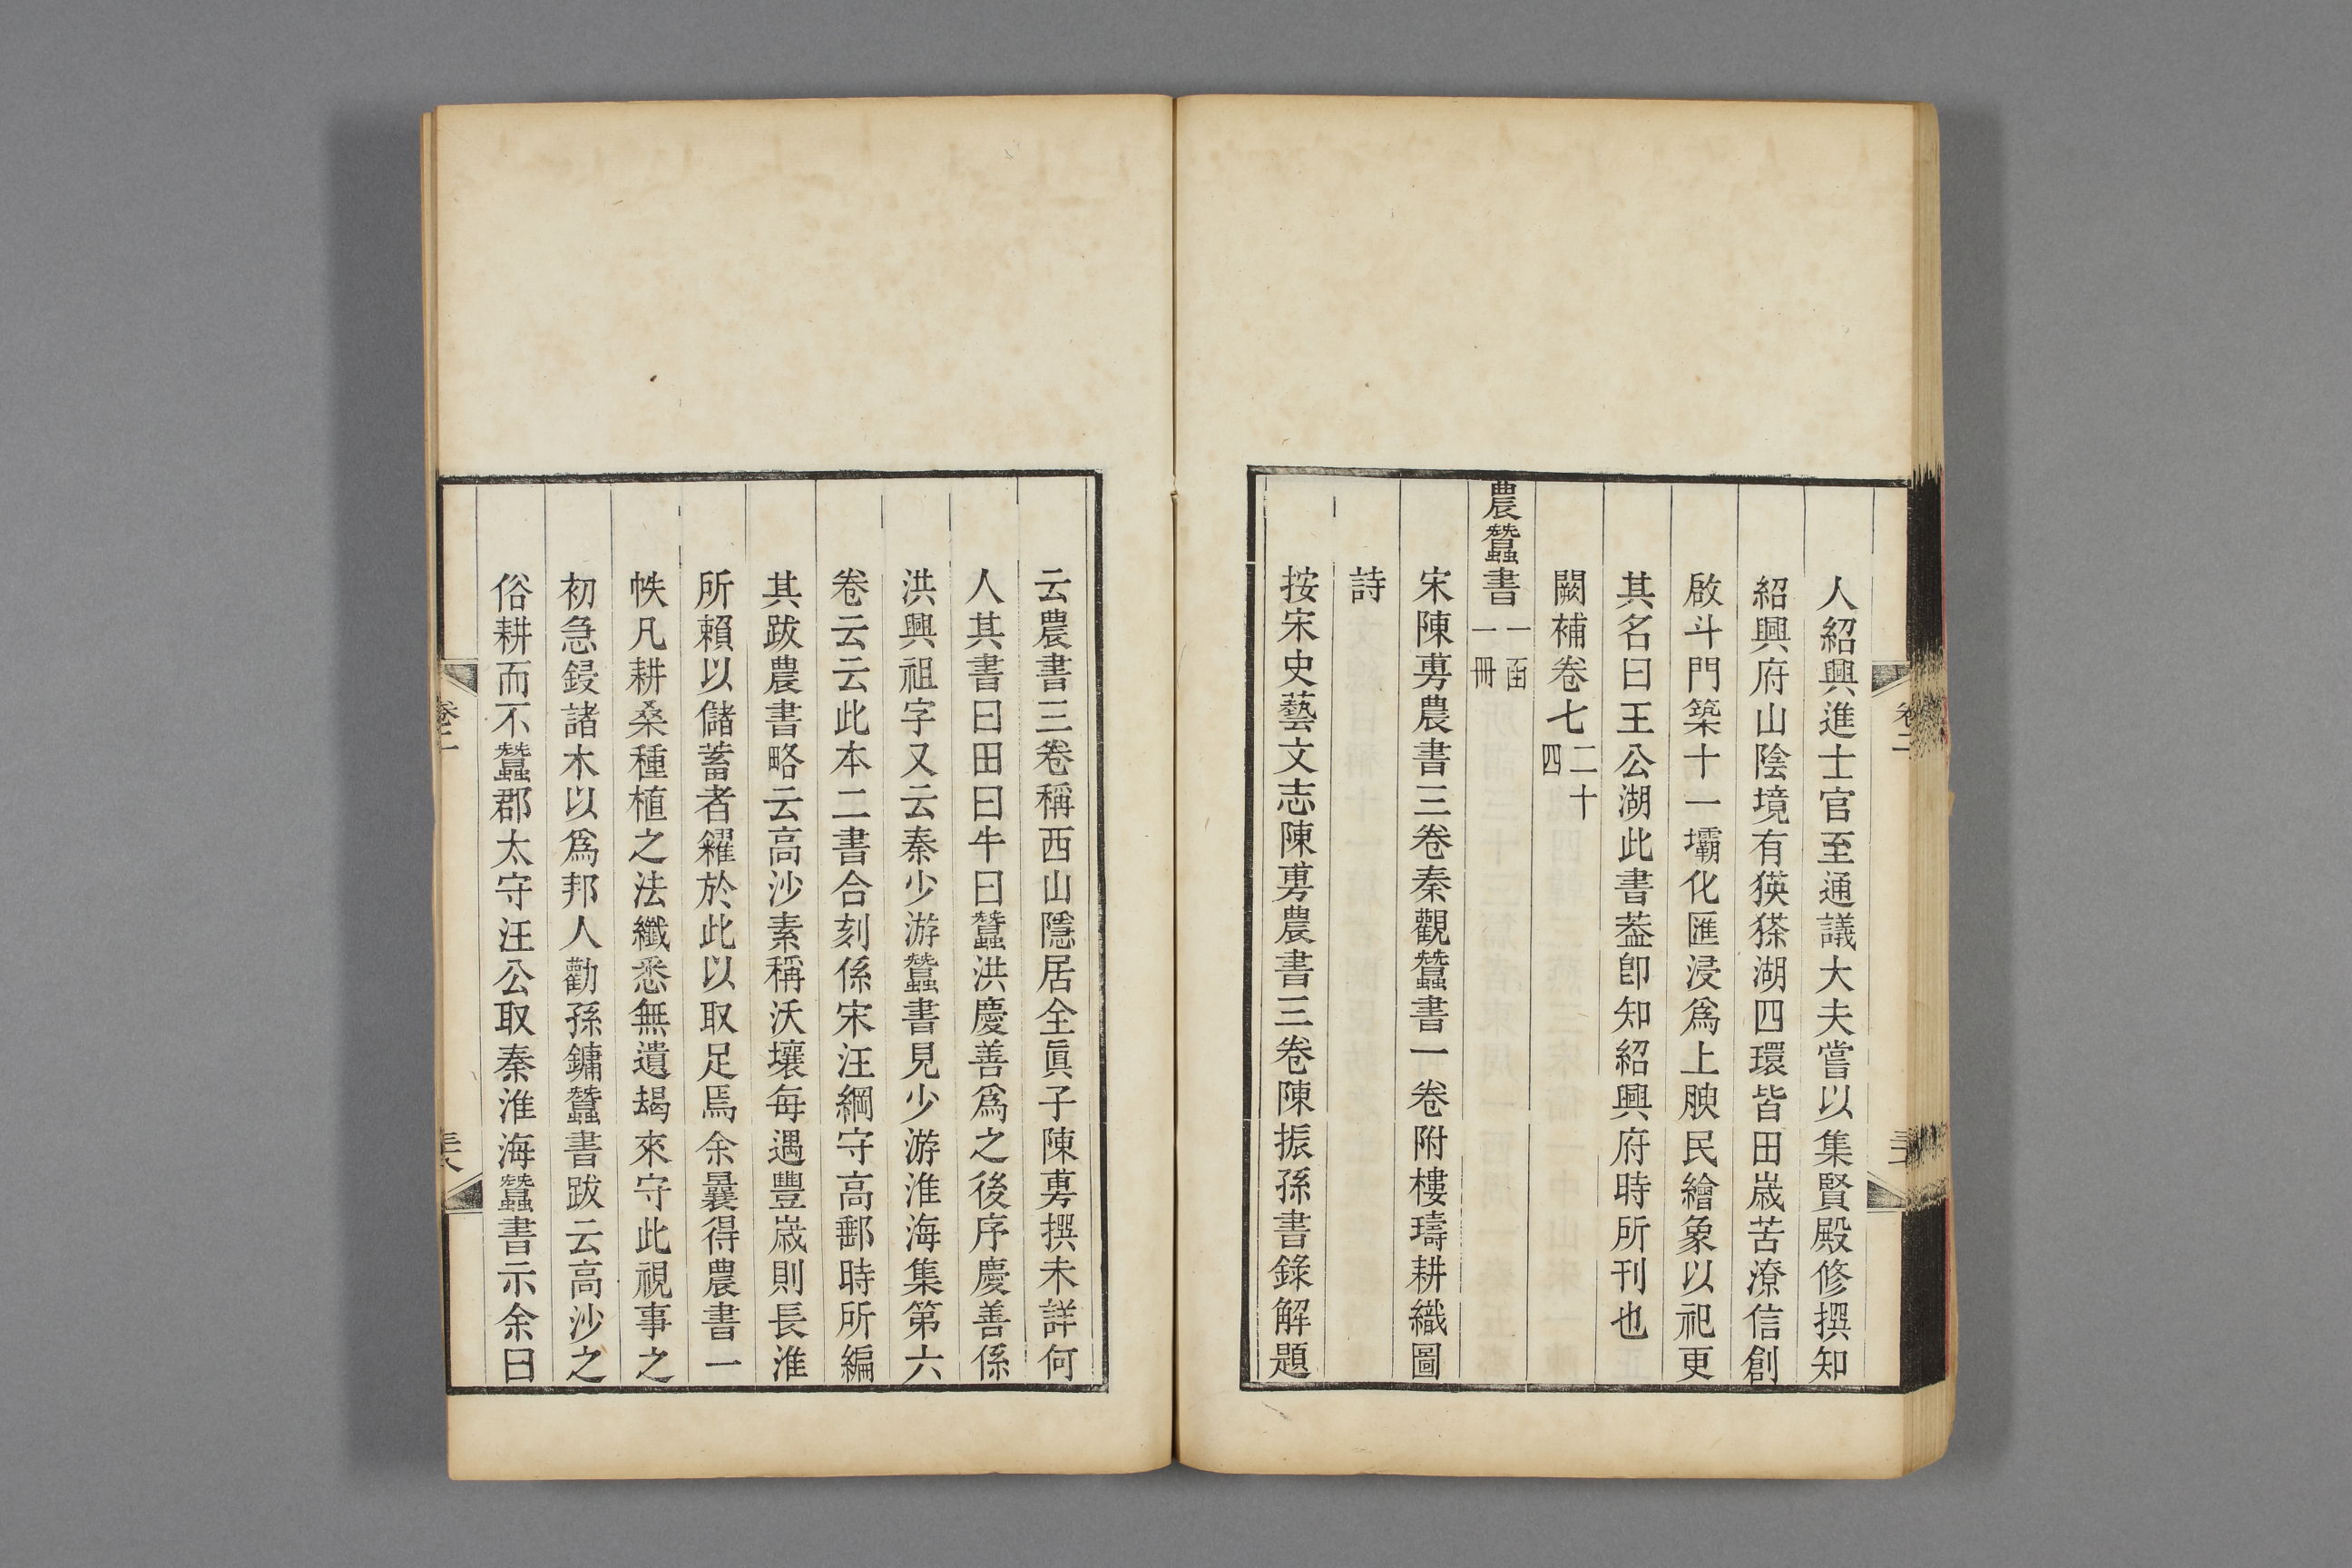 人紹興進士官至通議大夫嘗以集賢殿修撰知
紹興府山陰境有㹵𤠔湖四環皆田歲苦潦信創
啟斗門築十一壩化匯浸爲上腴民繪象以祀更
其名曰王公湖此書葢卽知紹興府時所刊也
闕補卷七二十四
農蠶書一函一冊
宋陳旉農書三卷秦觀蠶書一卷附樓璹耕織圖
詩
按宋史藝文志陳旉農書三卷陳振孫書錄解題
云農書三卷稱西山隱居全眞子陳旉撰未詳何
人其書曰田曰牛曰蠶洪慶善爲之後序慶善係
洪興祖字又云秦少游蠶書見少游淮海集第六
卷云云此本二書合刻係宋汪綱守高郵時所編
其跋農書略云高沙素稱沃壤每遇豐歲則長淮
所賴以儲蓄者糴於此以取足焉余曩得農書一
帙凡耕桑種植之法纖悉無遺朅來守此視事之
初急鋟諸木以爲邦人勸孫鏞蠶書跋云高沙之
俗耕而不蠶郡太守汪公取秦淮海蠶書示余曰
卷二